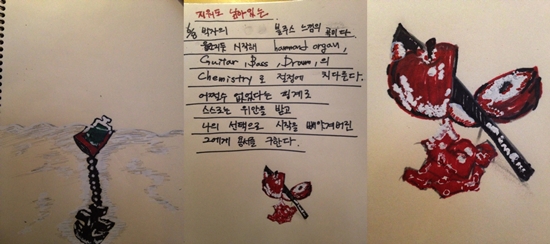 지워도 남아있는
6/8 박자의 블루스 느낌의 곡이다
시작해 hammond organ,
Guitar, Bass, Drum, 의
Chemistry로 절정에 치다른다.
어쩔수 없었다는 핑계로
스스로는 위안을 받고
나의 선택으로 시작을 빼앗겨버린
그에게 용서를 구한다.